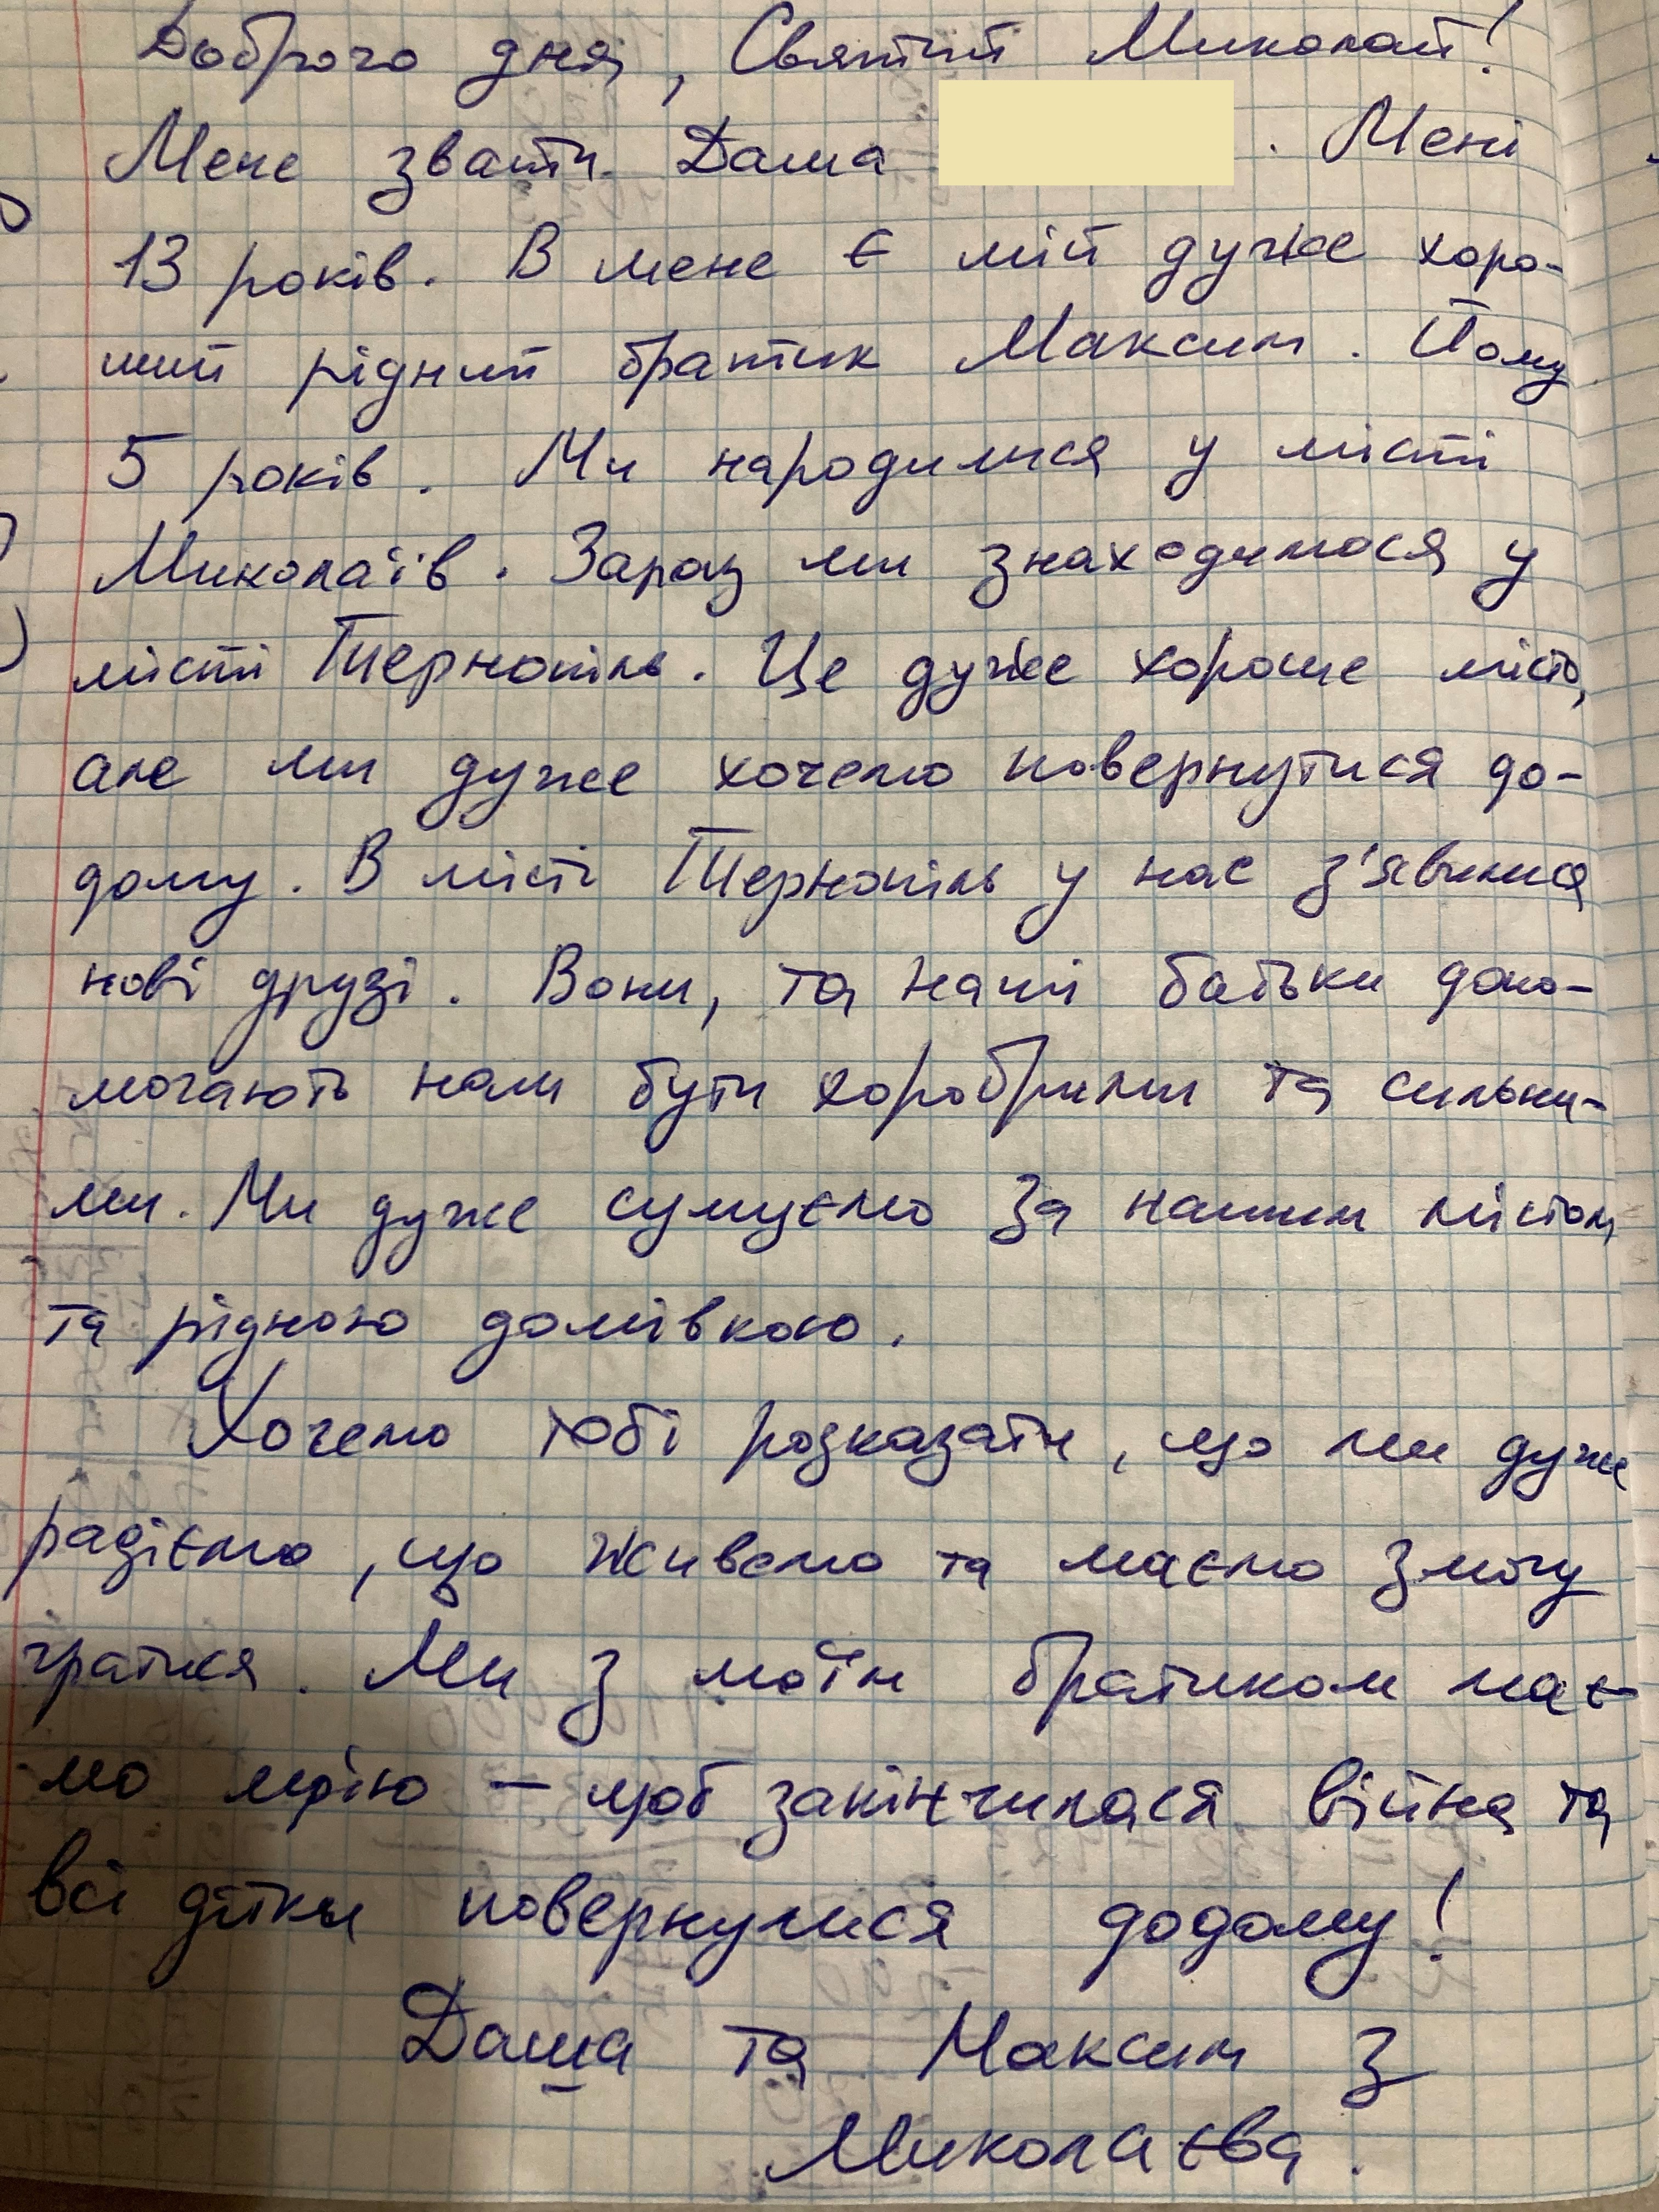 Доброго дня, Святий Миколай!
Мене звати Даша . Мені
13 років. В мене є мій дуже хоро-
ший рідний братик Максим. Йому
5 років. Ми народилися у місті
Миколаїв. Зараз ми знаходимося у
місті Тернопіль. Це дуже хороше місто,
але ми дуже хочемо повернутися до-
дому. В місті Тернопіль у нас з'явилися
нові друзі. Вони, та наші батьки допо-
могають нам бути хоробрими та сильни-
ми. Ми дуже сумуємо за нашим містом
та рідною домівкою.
Хочемо тобі розказати, що ми дуже
радіємо, що живемо та маємо змогу
гратися. Ми з моїм братиком має-
мо мрію – щоб закінчилася війна та
всі дітки повернулися додому!
Даша та Максим з
Миколаєва.